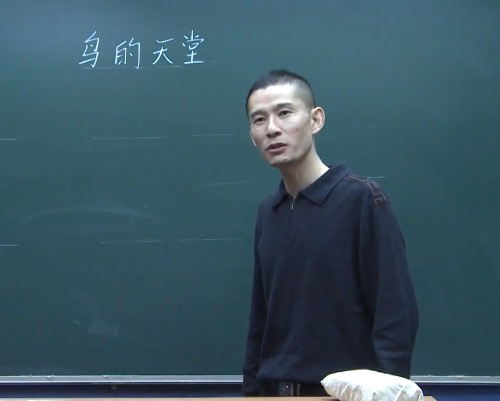 鸟的天堂